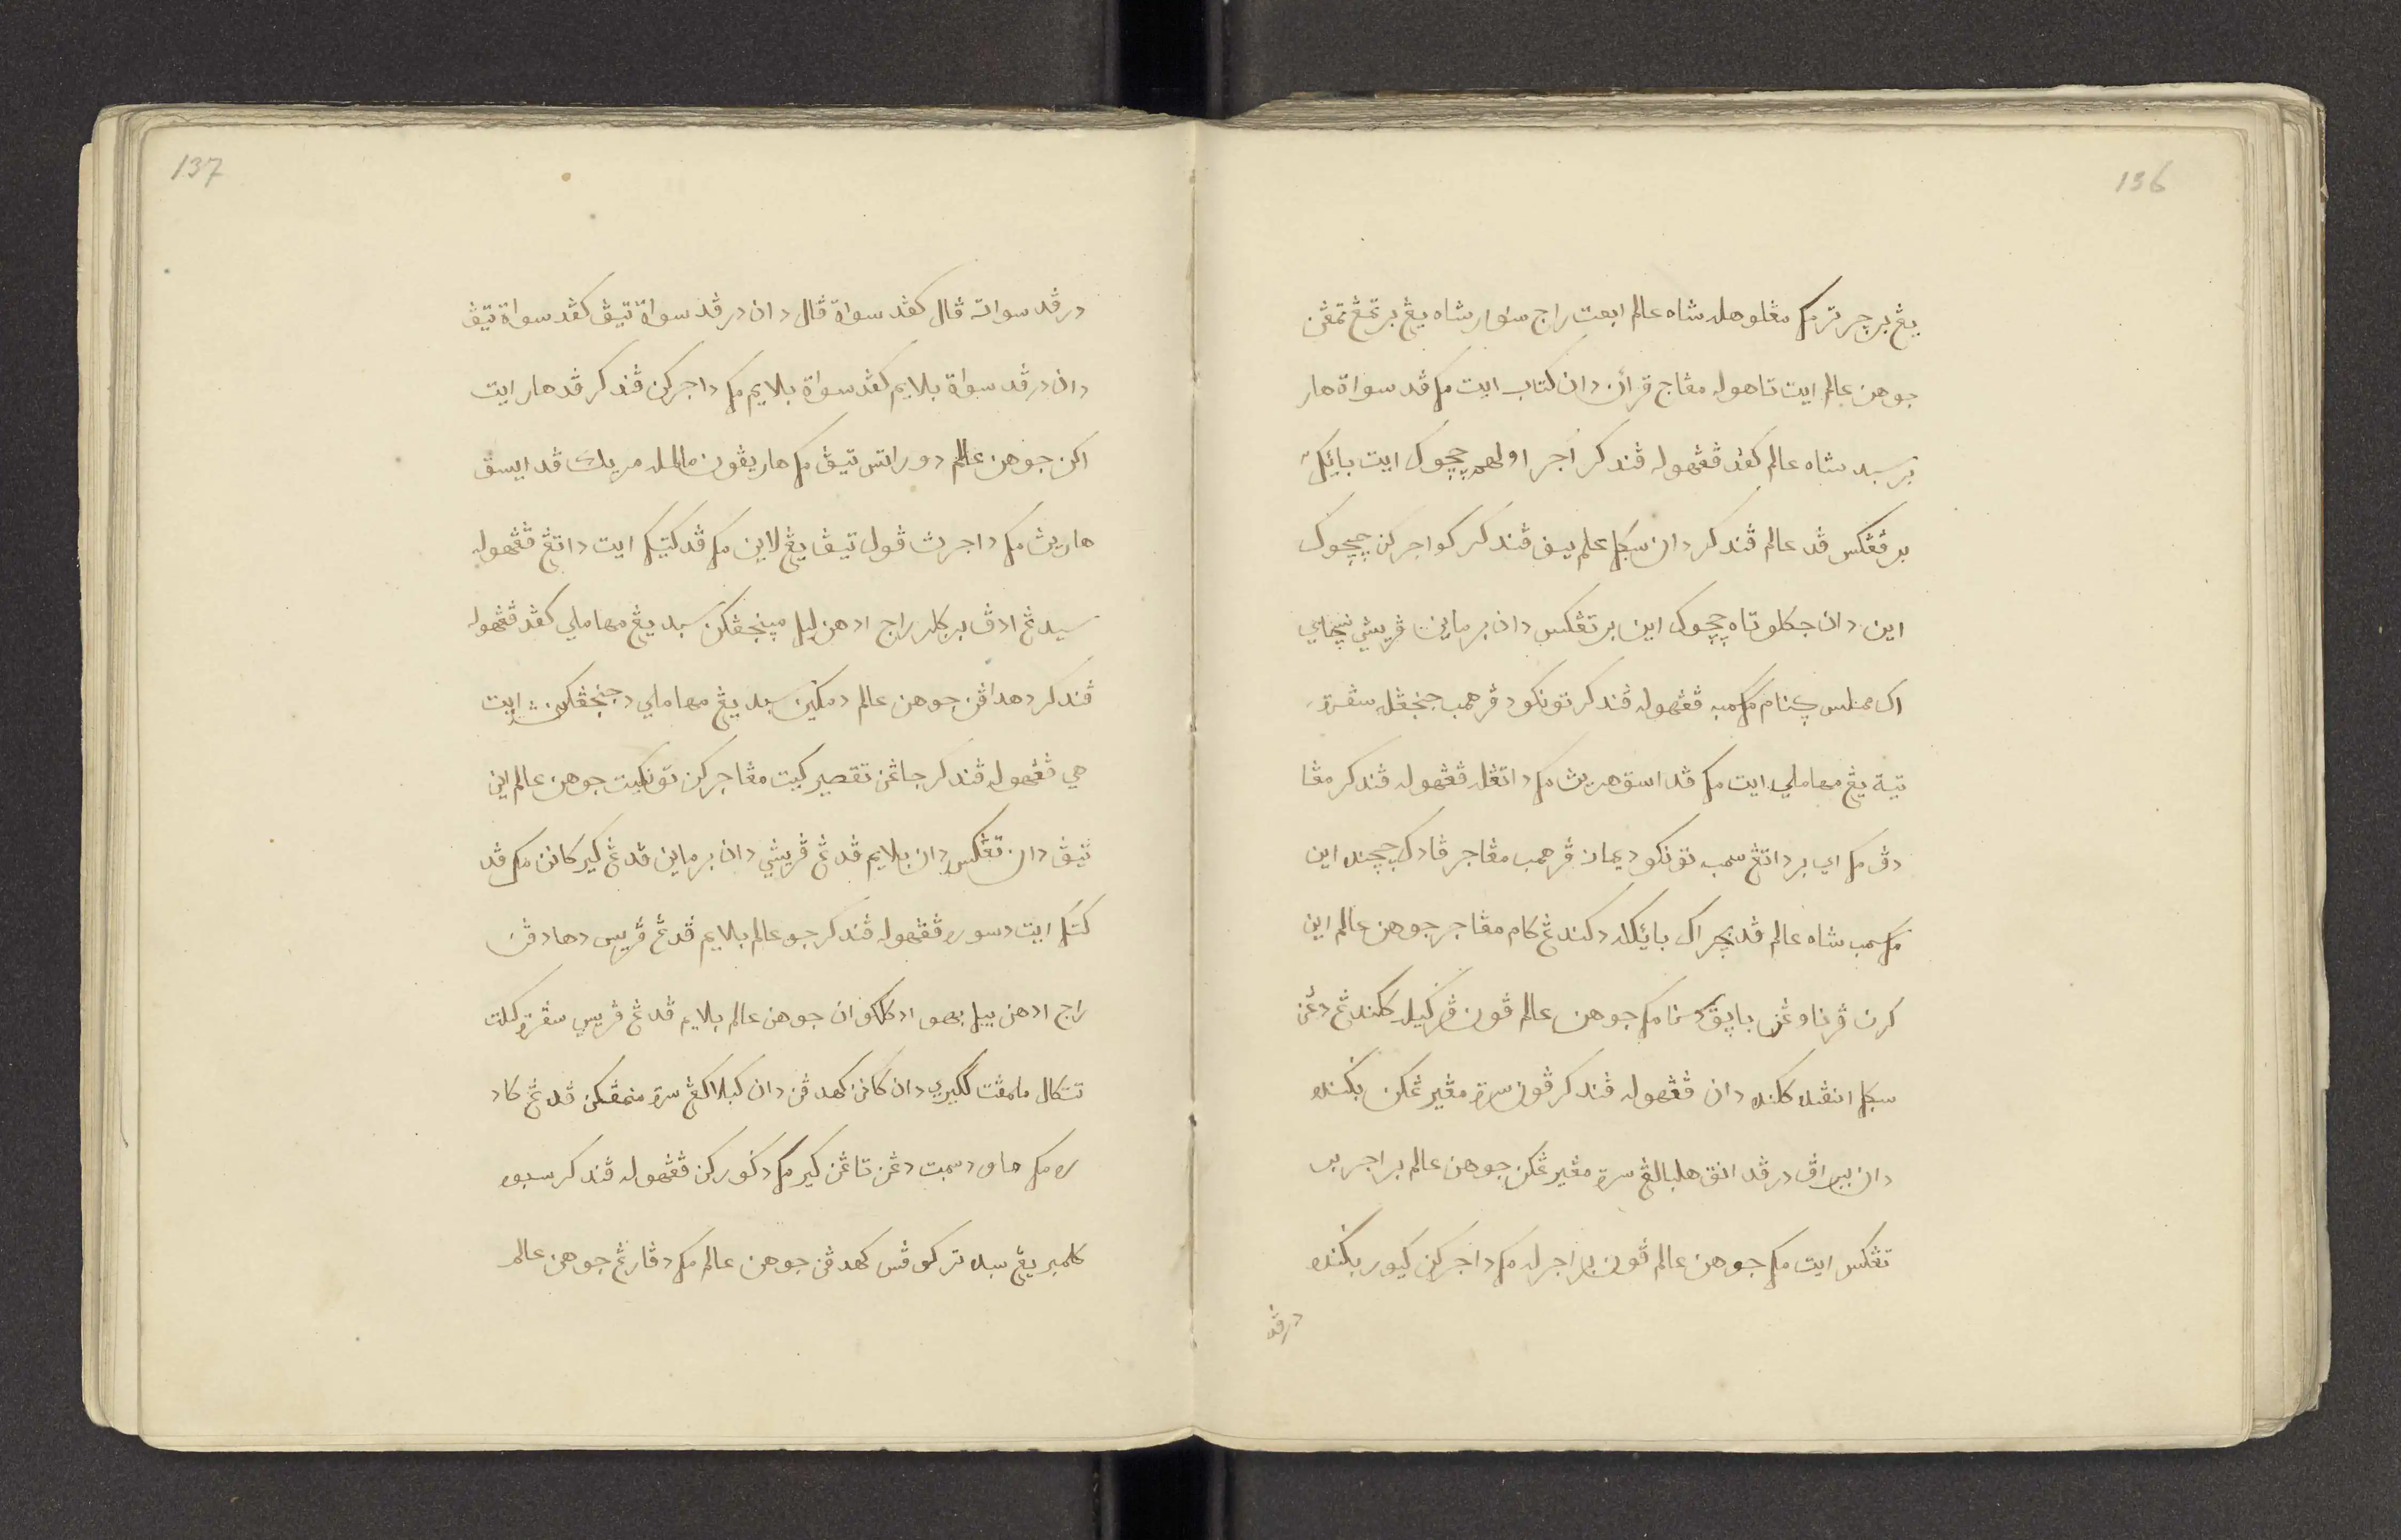 136
يڠ برچرتر مک مڠلوهله شاه عالم ابعت راج منور شاه يڠ برتمڠݢ تمڠن
جوهن عالم ايت تاهوله مڠاج قرأن دان کتاب ايت مک ڤد سواة هار
برسبد شاه عالم کڤد ڤڠهوله ڤندکر اجر اولهمو چچوک ايت بايک۲
برڤڠکس ڤد عالم ڤندکر دان سݢل علم يڠ ڤندکر کواجرکن چچوک
اين دان جکلو تاه چچوک اين برتڠکس دان برماين ڤريسي نسچاي
اک ممبلس کنام مک سمبه ڤڠهوله ڤندکر توانکو د ڤرهمب جنجڠله سڤرت
تيته يڠ مهاملي ايت مک ڤد اسوق هرين مک داتڠله ڤڠهوله ڤندکر مڠا
دڤ مک اي برداتڠ سمبه توانکو ديمان ڤرهمب مڠاجر ڤادک چچند اين
مک سبد شاه عالم ڤد بچار اک بايکله دکندڠ کامو مڠاجر جوهن عالم اين
کرن ڤرناوڠن باڽق دسنا مک جوهن عالم ڤون ڤرݢيله کݢلندڠ دڠن
سݢل انقد بݢند دان ڤڠهوله ڤندکر ڤون سرت مڠيرڠکن بݢند
دان بيراڤ درڤد انق هلبالڠ سرت مڠيرڠکن جوهن عالم براجر بر
تڠکس ايت مک جوهن عالم ڤون براجرله مک داجرکن ݢورو بݢند
درڤد
137
درڤد سوات ڤال کڤد سوات ڤال دان درڤد سوات تيڤ کڤد سوات تيڤ
دان درڤد سوات بلايم کڤد سوات بلايم مک داجرکن ڤندکر ڤد هار ايت
اکن جوهن عالم دوراتس تيڤ مک هاريڤون مالمله مريک ڤد ايسق
هارين مک داجرن ڤول تيڤ يڠ لاين مک ڤد کتيک ايت داتڠ ڤڠهوله
سيدڠ ادڤ برکلر راج ادهن ليل مڽنجڠکن سبد يڠ مهاملي کڤد ڤڠهوله
ڤندکر دهداڤن جوهن عالم دمکين سبد يڠ مهاملي دجنجڠکن ايت
هي ڤڠهوله ڤندکر جاڠن تقصير کيت مڠاجرکن توانکيت جوهن عالم اين
تيڤ دان تڠکس دان بلايم ڤدڠ ڤريسي دان برماين ڤدڠ کيري کانن مک ڤد
کتيک ايت دسوره ڤڠهوله ڤندکر جوهن عالم بلايم ڤدڠ ڤريس دهادڤن
راج ادهن ليل بهوا اد کلکوان جوهن عالم بلايم ڤدڠ ڤريسي سڤرت کيلت
تتکال ملمڤت ککيري دان کانن کهدڤن دان کبلاکڠ سرت منمڤکن ڤدڠ کاد
ره مک هاو دسمبت دڠن تاڠن کير مک دکورکن ڤڠهوله ڤندکر سبوه
کلمبر يڠ سبده ترکوڤس کهدڤن جوهن عالم مک دڤارڠ جوهن عالم